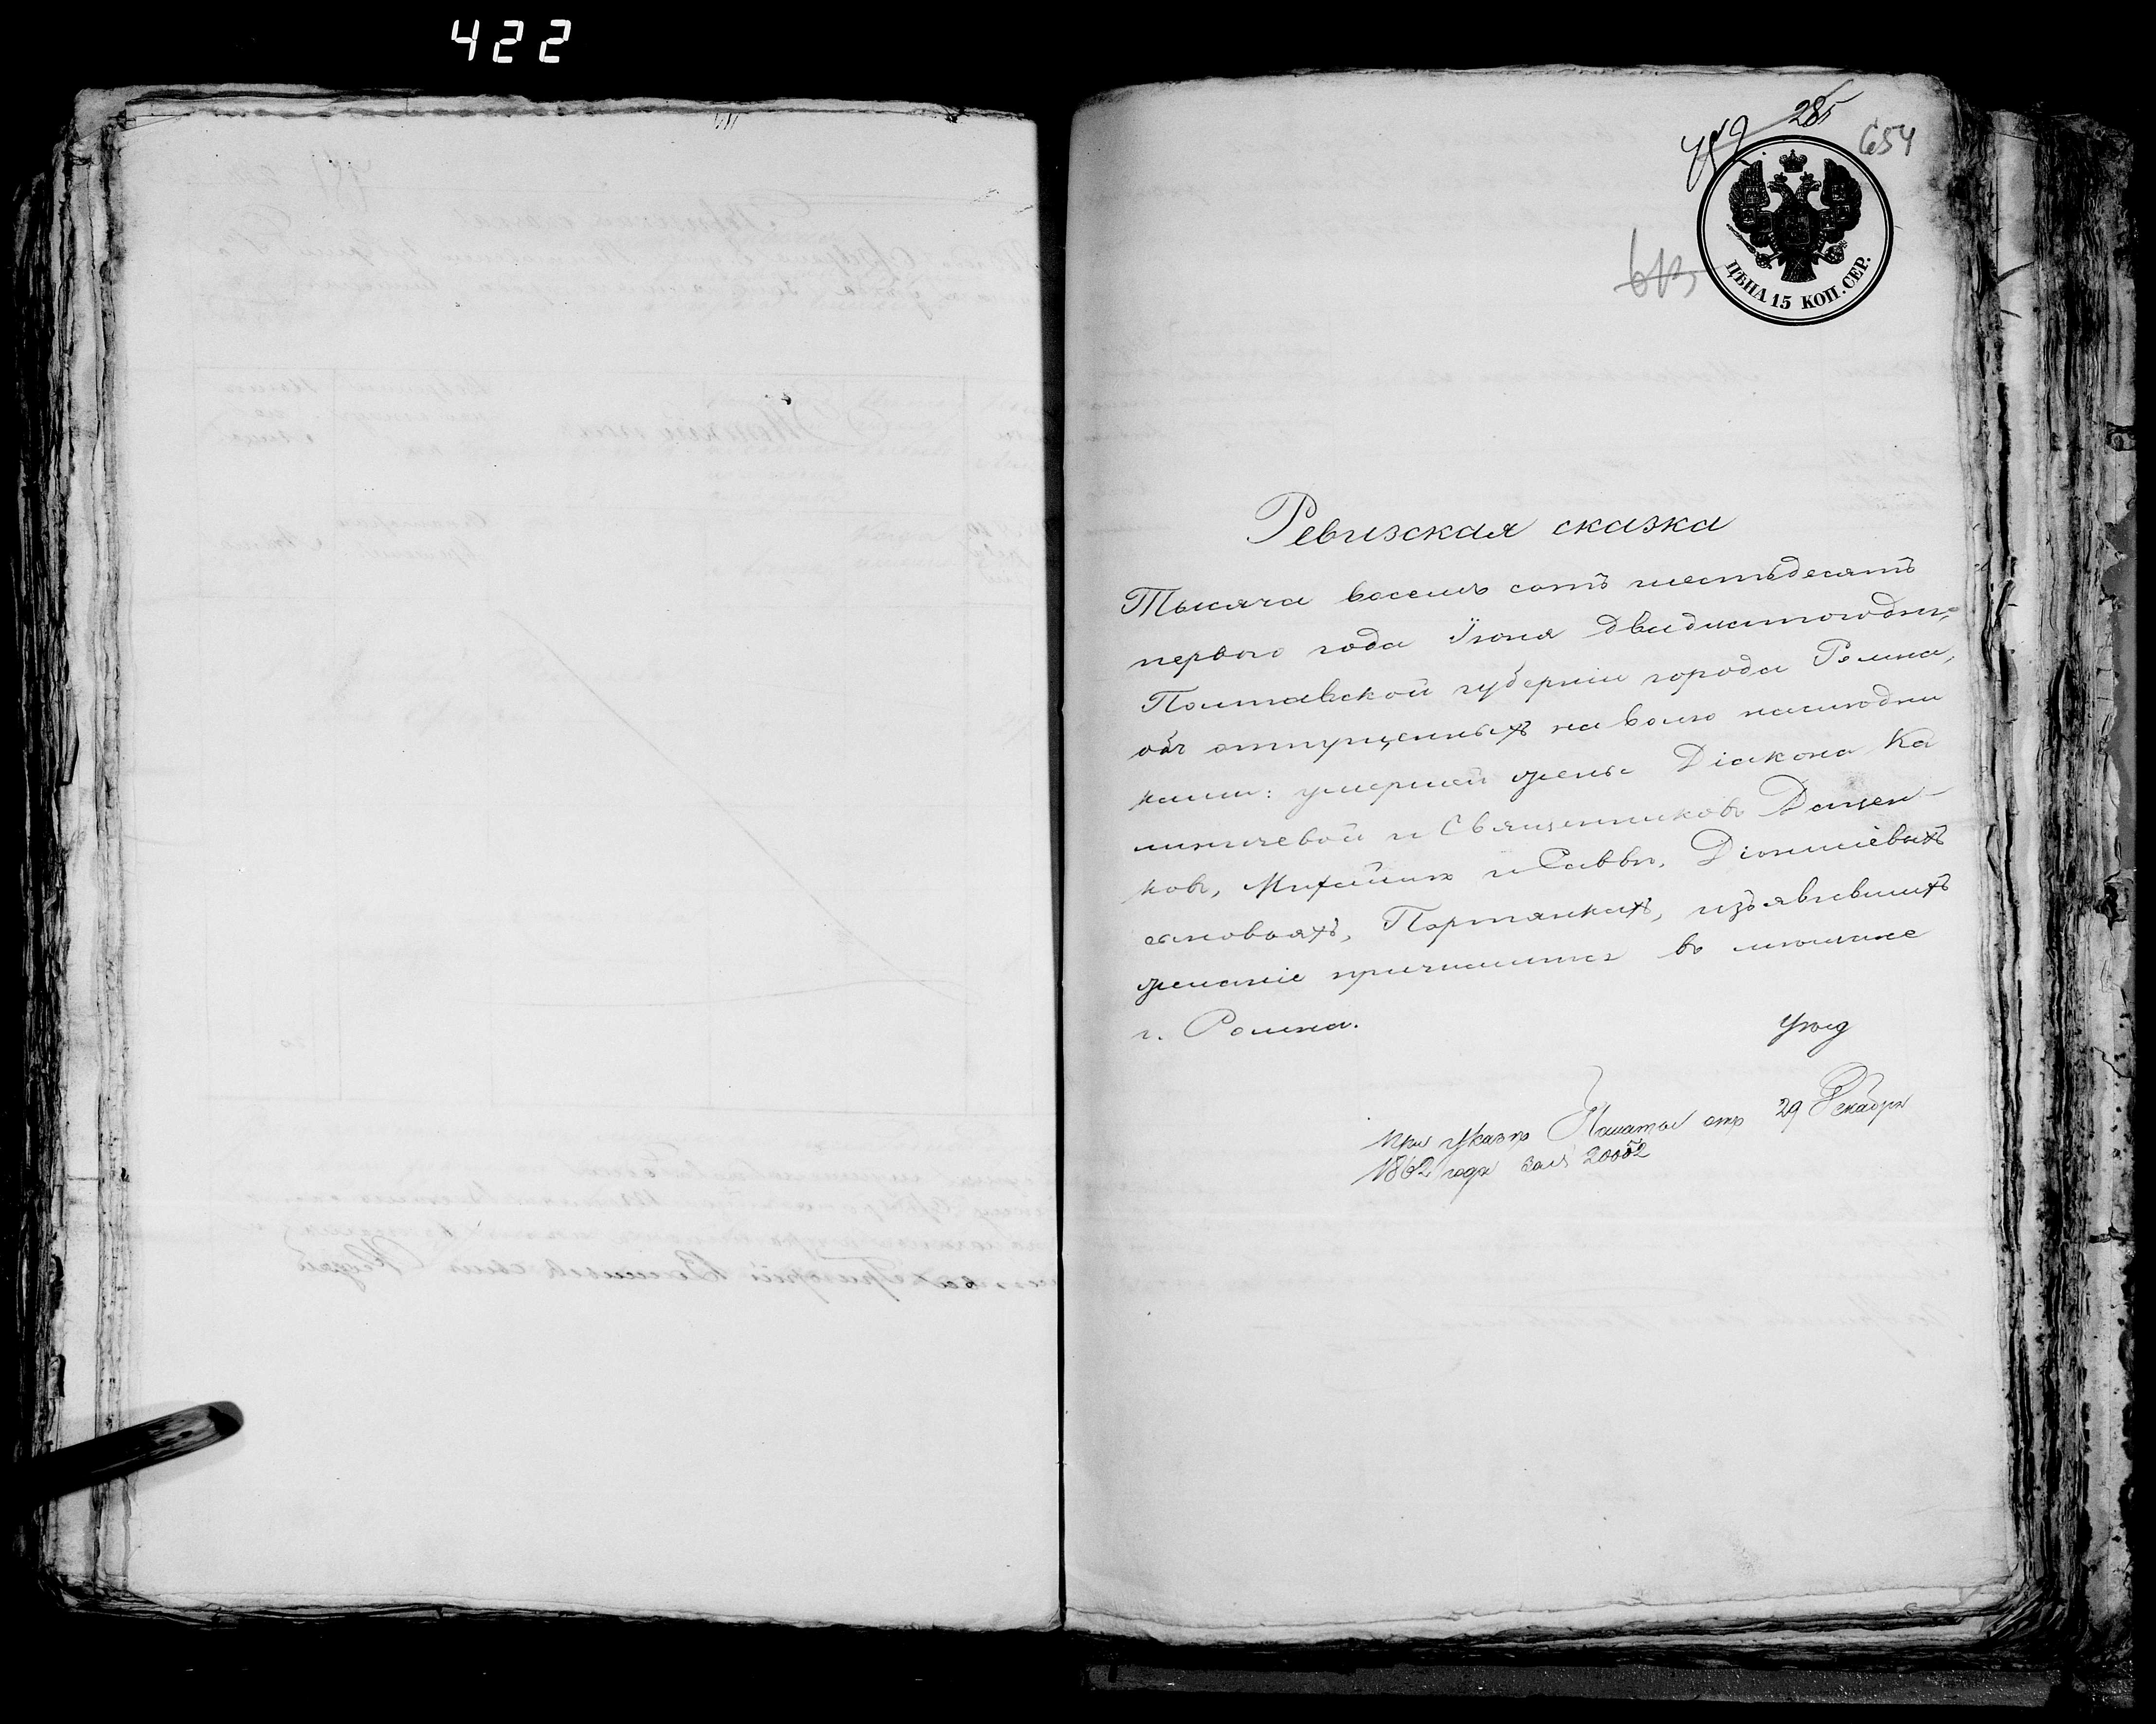 422
285
654
ЦѢНА 15 КОП. СЕР.
Ревизская сказка
Тысяча восемь сотъ шестьдесятъ
перваго года Іюня двадцатого дня,
Полтавской губерніи города Ромна,
объ отпущенныхъ на волю наслѣдни
ками: умершей жены Діакона Ка
линичевой и Священниковъ Даценко-
ковъ, Михаилѣ и Саввѣ, Діонисіевыхъ
сыновьяхъ, Портянкахъ, изъявившихъ
желаніе причислится въ мѣщане
г. Ромна.
При Указѣ Палаты отъ 29 Декабря
1862 года за № 20052